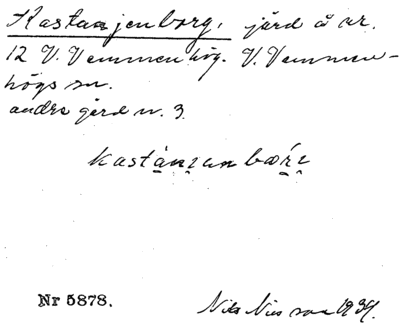 Kastanjenborg, gård å nr.
12 V. Vemmenhög. V. Vemmen-
högs sn.
andra gård n. 3.
Nr 5878.
Nils Nilsson 1934.